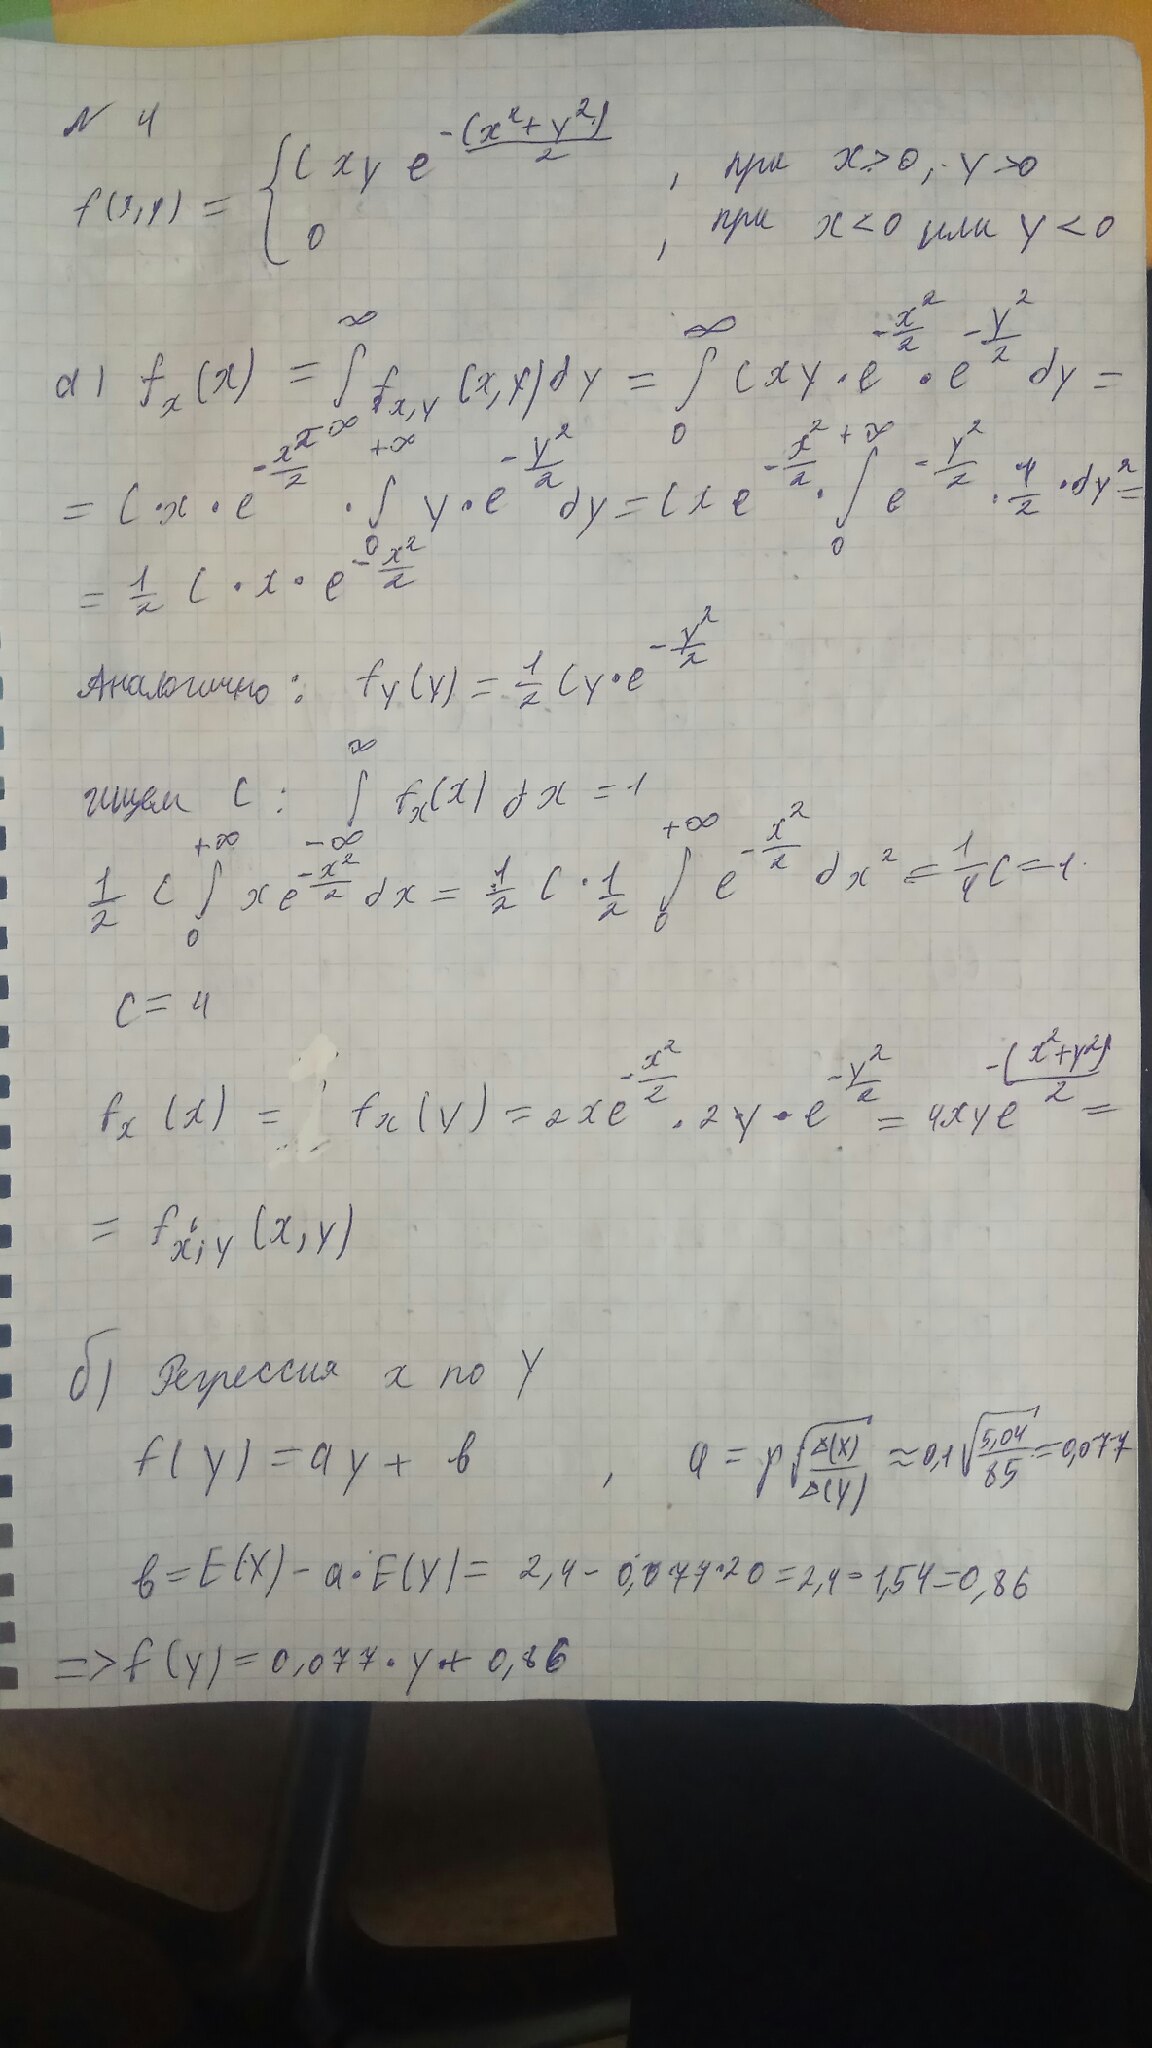 N 4
f(x,y) = { Cxy e^{-(x²+y²)/2} , при x>0, y>0
0 , при x<0 или y<0
а) f_x(x) = ∫_{-∞}^{∞} f_{x,y}(x,y)dy = ∫_0^∞ Cxy·e^{-x²/2}·e^{-y²/2} dy =
= C·x·e^{-x²/2}·∫_0^{+∞} y·e^{-y²/2} dy = Cxe^{-x²/2}·∫_0^{+∞} e^{-y²/2}·1/2·dy² =
= 1/2 C·x·e^{-x²/2}
Аналогично: f_y(y) = 1/2 Cy·e^{-y²/2}
ищем C: ∫_{-∞}^{∞} f_x(x)dx = 1
1/2 C ∫_0^{+∞} xe^{-x²/2} dx = 1/2 C·1/2 ∫_0^{+∞} e^{-x²/2} dx² = 1/4 C = 1.
C = 4
f_x(x) = f_x(y) = 2xe^{-x²/2}·2y·e^{-y²/2} = 4xye^{-(x²+y²)/2} =
= f_{x,y}(x,y)
б) Регрессия x по y
f(y) = ay + b , a = ρ√(D(X)/D(Y)) ≈ 0,1√(5,04/85) = 0,077
b = E(X) - a·E(Y) = 2,4 - 0,077·20 = 2,4 - 1,54 = 0,86
=> f(y) = 0,077·y + 0,86